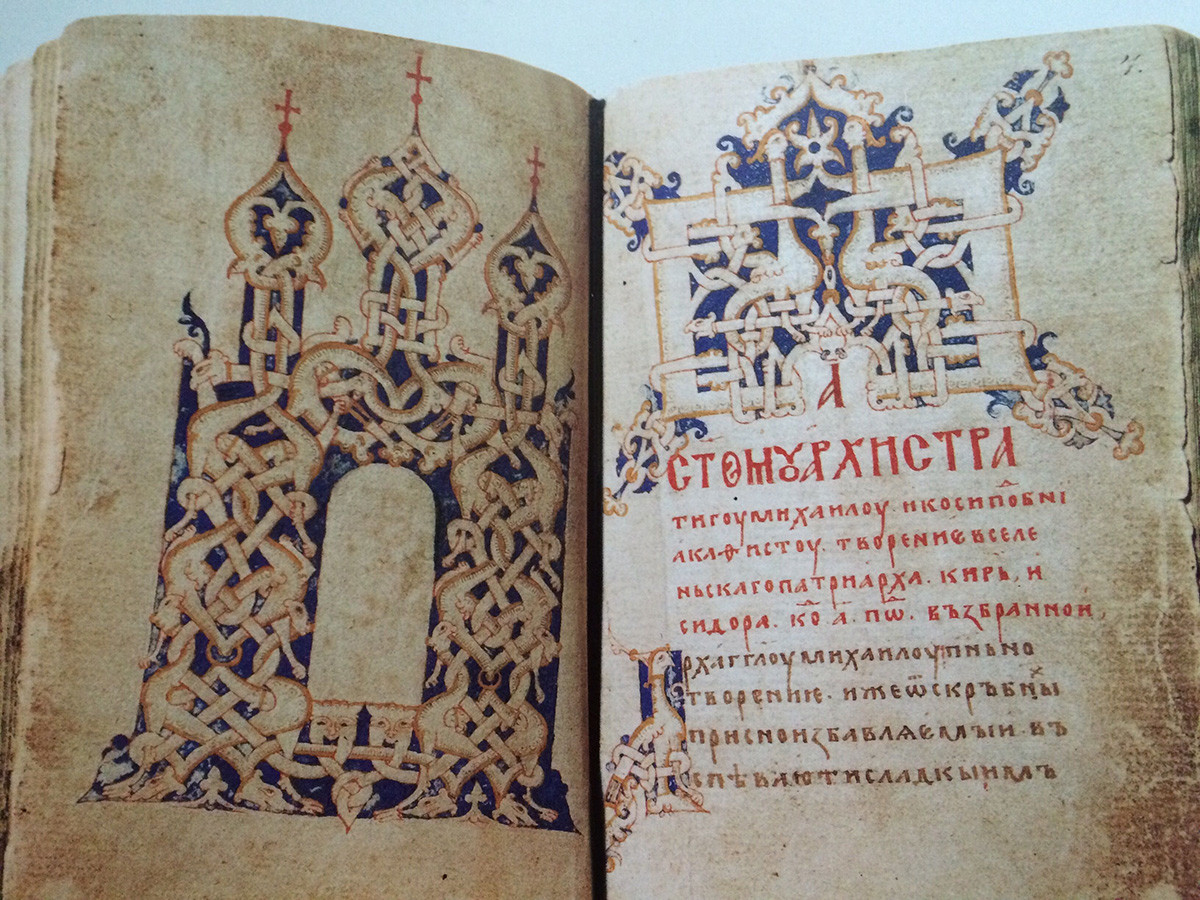 А
СТОМꙊАРХИСТРА
тигоумихаилоу. икосипⷪ҇бнї
акаѳистоу. творениѥвселе
ньскагопатриарха. кирь, и
сидора. кⷪ҇. а҃. пѡⷣ. възбранной
рхагглоумихаилоупѣньно
творение. ижеѿскръбны
присноизбавляемыи. въ
спѣваютисладкыимь